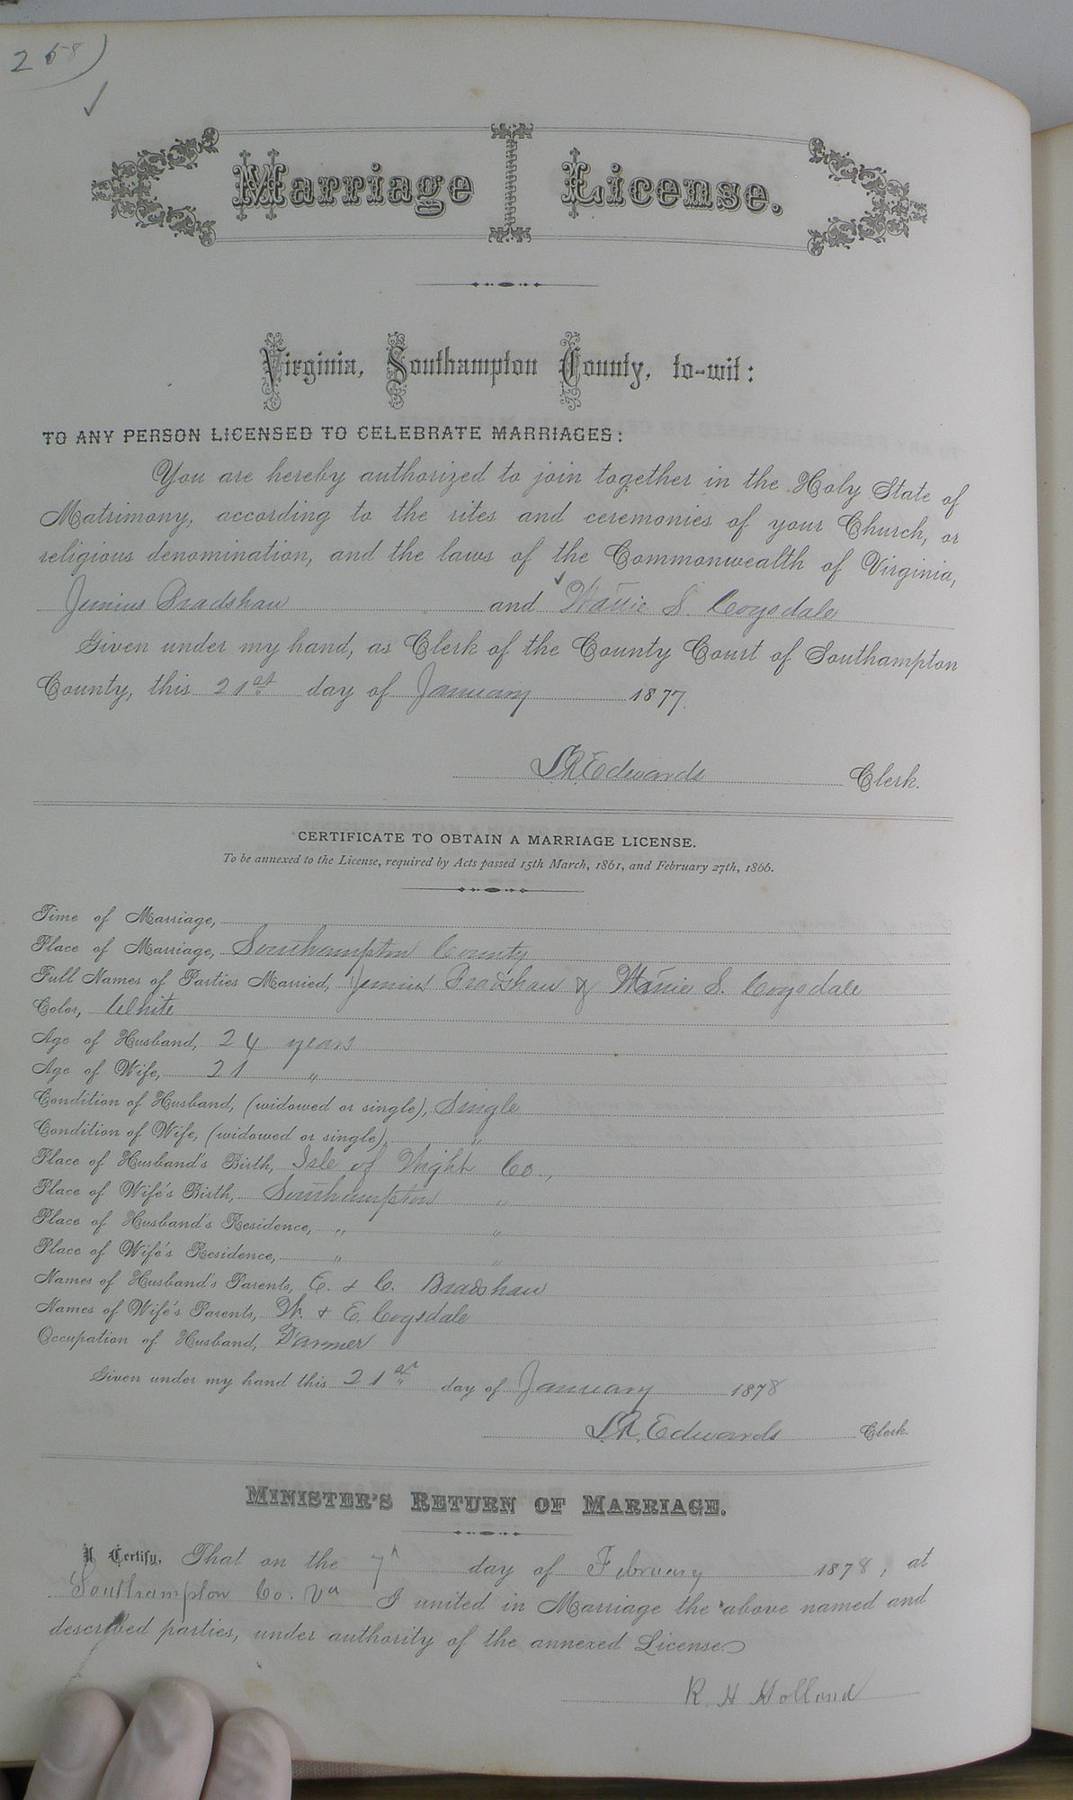 258)
Marriage License.
Virginia, Southampton County, to-wit:
TO ANY PERSON LICENSED TO CELEBRATE MARRIAGES:
You are hereby authorized to join together in the Holy State of
Matrimony, according to the rites and ceremonies of your Church, or
religious denomination, and the laws of the Commonwealth of Virginia,
Junius Bradshaw and S. Cogsdale
Given under my hand, as Clerk of the County Court of Southampton
County, this 21st day of January 1877.
L.R. Edwards Clerk.
CERTIFICATE TO OBTAIN A MARRIAGE LICENSE.
To be annexed to the License, required by Acts passed 15th March, 1861, and February 27th, 1866.
Time of Marriage,
Place of Marriage, Southampton County
Full Names of Parties Married, Junius Bradshaw & S. Cogsdale
Color, White
Age of Husband, 24 years
Age of Wife, 21 "
Condition of Husband, (widowed or single), Single
Condition of Wife, (widowed or single), "
Place of Husband's Birth, Isle of Wight Co.,
Place of Wife's Birth, Southampton "
Place of Husband's Residence, " "
Place of Wife's Residence, " "
Names of Husband's Parents, E. & C. Bradshaw
Names of Wife's Parents, W. & E. Cogsdale
Occupation of Husband, Farmer
Given under my hand this 21st day of January 1878
L.R. Edwards Clerk.
MINISTER'S RETURN OF MARRIAGE.
I Certify, That on the 7th day of February 1878, at
Southampton Co. Va I united in Marriage the above named and
described parties, under authority of the annexed License.
R. H Holland